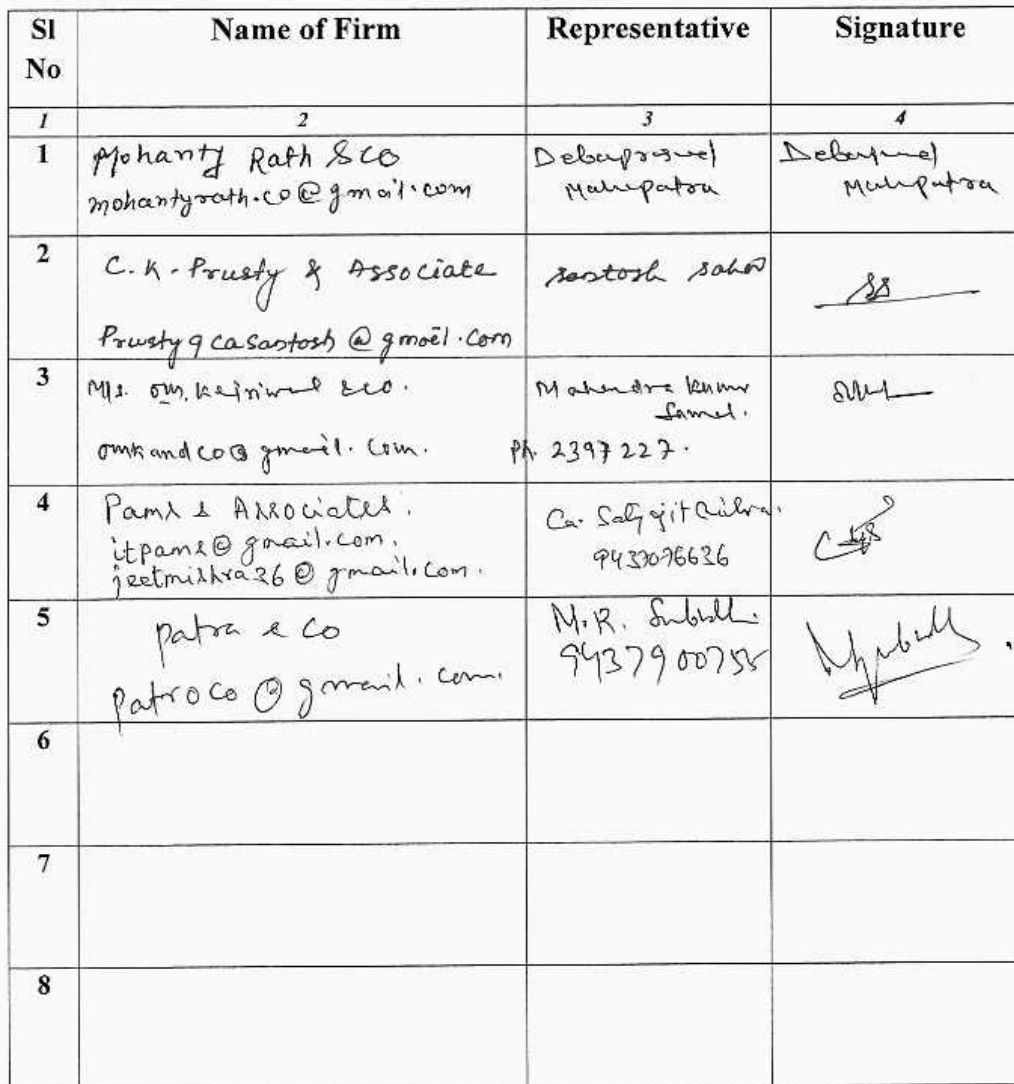 Sl No
Name of Firm
Representative
Signature
1
2
3
4
1
Mohanty Rath & CO
mohantyrath.co@gmail.com
Debaprasad
Mahapatra
Mahapatra
2
C.K. Prusty & Associate
Prusty9casantosh@gmail.com
santosh sahoo
SS
3
M/s. om. Kejriwal & co.
omkandco@gmail.com.
Mahendra Kumar
Samal.
Ph. 2397227.
4
Pams & Associates.
itpams@gmail.com.
jeetmishra36@gmail.com.
Ca. Satyajit Mishra.
9437076636
5
patra & co
patroco@gmail.com.
M.R.
6
7
8